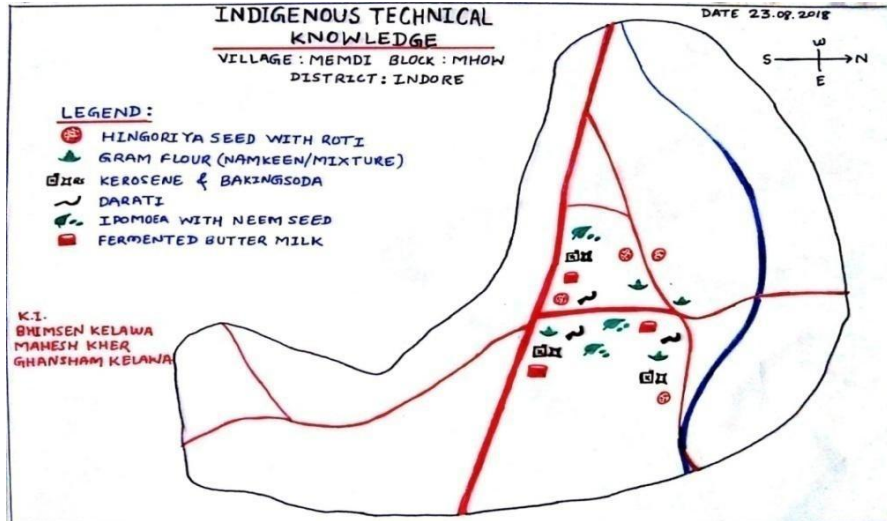 INDIGENOUS TECHNICAL
KNOWLEDGE
VILLAGE : MEMDI BLOCK : MHOW
DISTRICT : INDORE
DATE 23.08.2018
W
S N
E
LEGEND :
HINGORIYA SEED WITH ROTI
GRAM FLOUR (NAMKEEN/MIXTURE)
KEROSENE & BAKINGSODA
DARATI
IPOMOEA WITH NEEM SEED
FERMENTED BUTTER MILK
K.I.
BHIMSEN KELAWA
MAHESH KHER
GHANSHAM KELAWA